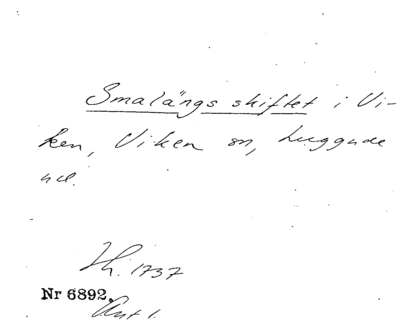 Smalängs skiftet i Vi-
ken, Viken sn, Luggude
hd.
Th. 1737
Nr 6892.
Akt 1.